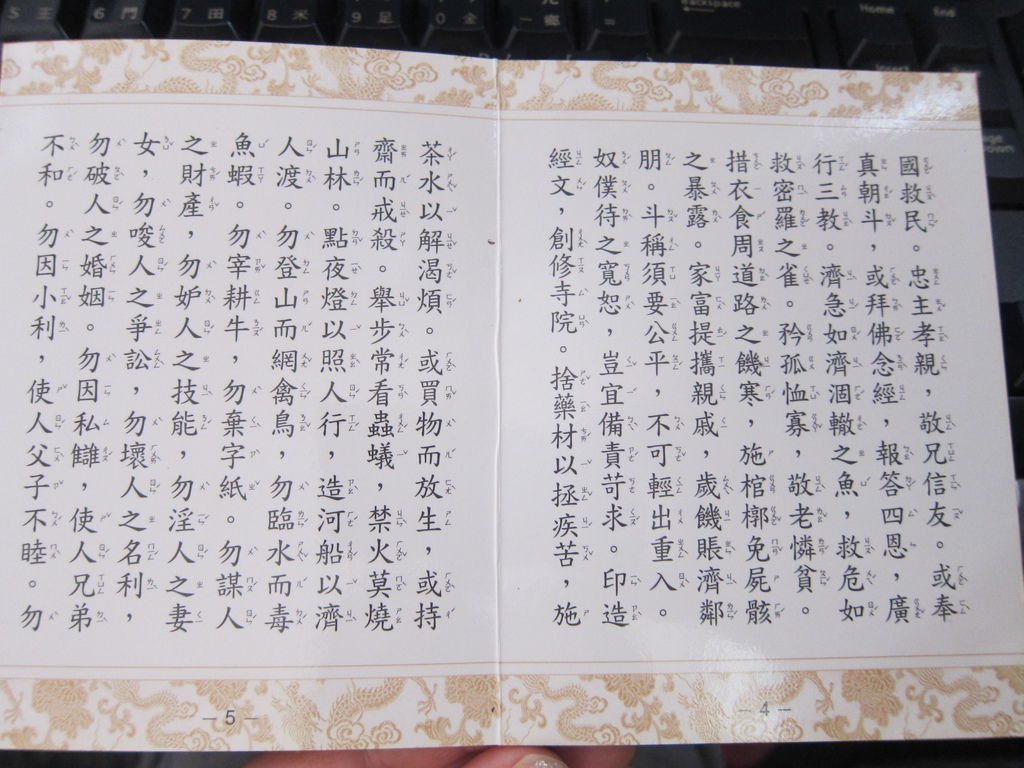 國救民。忠主孝親，敬兄信友。或奉
真朝斗，或拜佛念經，報答四恩，廣
行三教。濟急如濟涸轍之魚，救危如
救密羅之雀。矜孤恤寡，敬老憐貧。
措衣食周道路之饑寒，施棺槨免屍骸
之暴露。家富提攜親戚，歲饑賬濟鄰
朋。斗稱須要公平，不可輕出重入。
奴僕待之寬恕，豈宜備責苛求。印造
經文，創修寺院。捨藥材以拯疾苦，施
－4－
茶水以解渴煩。或買物而放生，或持
齋而戒殺。舉步常看蟲蟻，禁火莫燒
山林。點夜燈以照人行，造河船以濟
人渡。勿登山而網禽鳥，勿臨水而毒
魚蝦。勿宰耕牛，勿棄字紙。勿謀人
之財產，勿妒人之技能，勿淫人之妻
女，勿唆人之爭訟，勿壞人之名利，
勿破人之婚姻。勿因私讎，使人兄弟
不和。勿因小利，使人父子不睦。勿
－5－
5 王
6 門
7 田
8 米
9 足
0 金
Backspace
Home
End
Insert